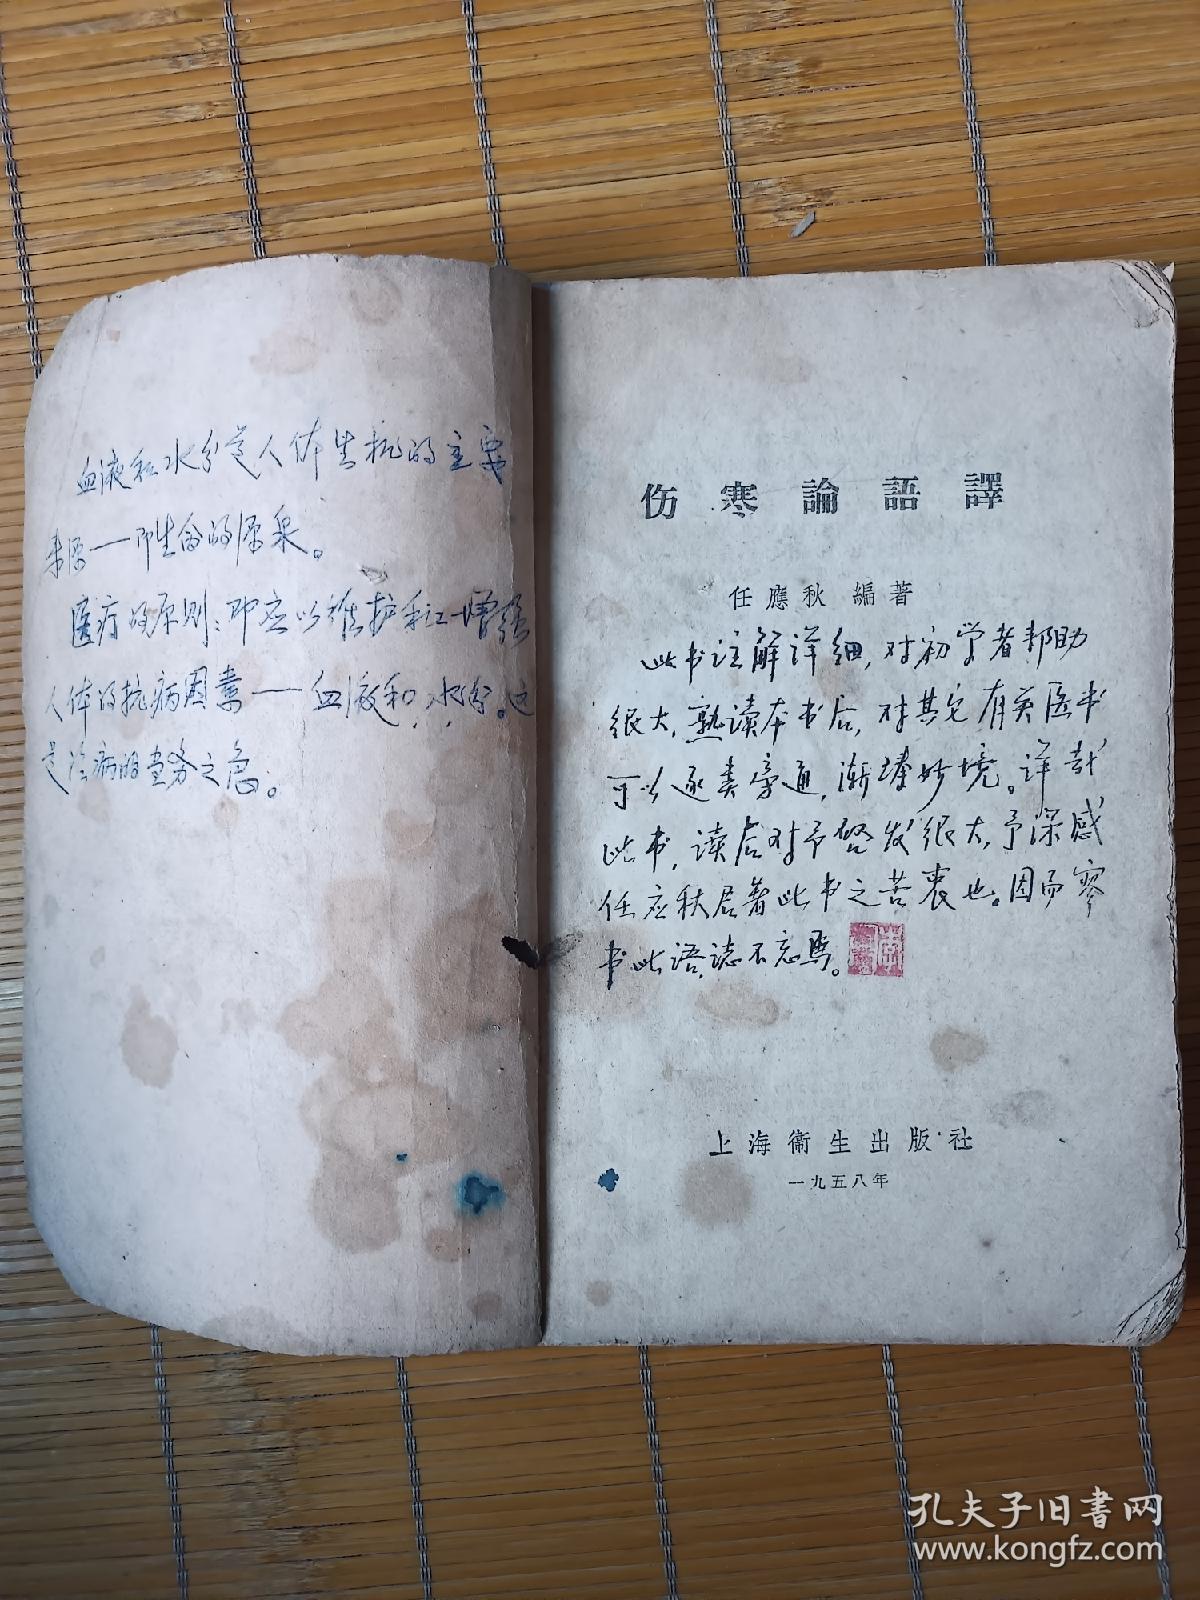 血液和水分是人体生机的主要
来源——即生命的源泉。
医疗的原则:即应以维护和增强
人体的抗病因素——血液和水分。这
是治病的当务之急。
伤寒論語譯
任應秋 編著
此书注解详细,对初学者帮助
很大,熟读本书后,对其它有关医书
可以逐类旁通,渐臻妙境。详哉
此书,读后对予启发很大,予深感
任应秋君著此书之苦衷也。因而寥
书此语,誌不忘焉。
上海衛生出版社
一九五八年
孔夫子旧书网
www.kongfz.com